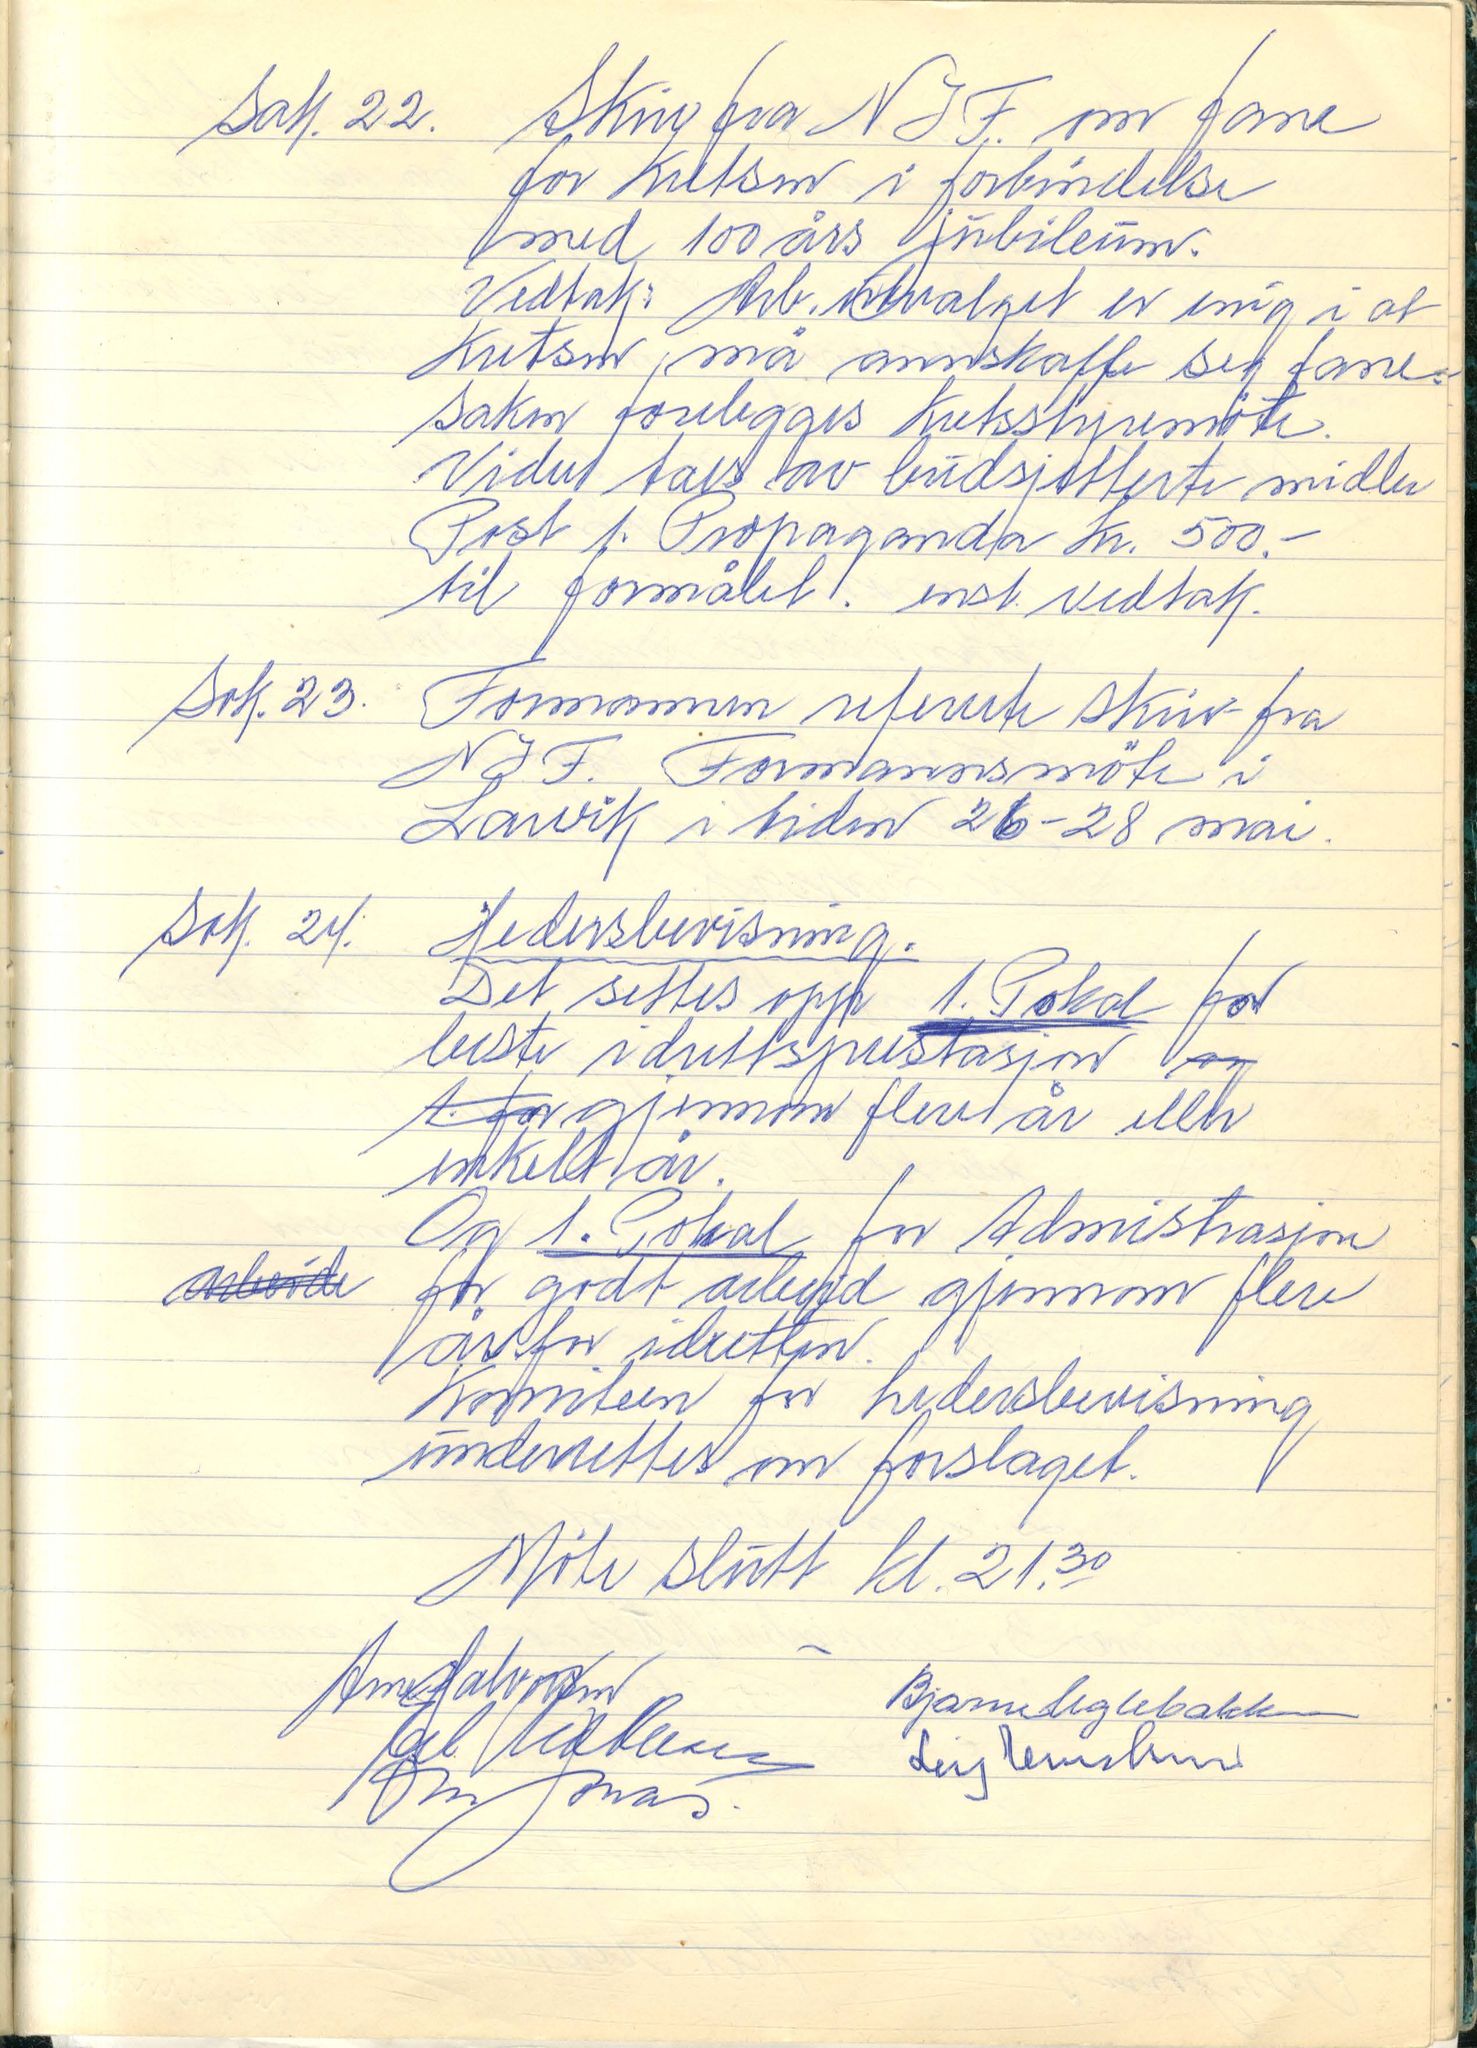 Sak. 22. Skriv fra N I F. om fane
for Kretsen i forbindelse
med 100 års jubileum.
Vedtak: Arb. utvalget er enig i at
Kretsen må annskaffe seg fane.
Saken forelegges Kretsstyremöte.
Videre taes av budsjetterte midler
Post 1. Propaganda Kr. 500.-
til formålet. enst. vedtak.
Sak. 23. Formannen refererte skriv fra
N I F. Formannsmöte i
Larvik i tiden 26-28 mai.
Sak. 24. Hedersbevisning.
Det settes opp 1. Pokal for
beste idrettsprestasjon og
1. for gjennom flere år eller
enkelt år.
Og 1. Pokal for Admistrasjon
arbeide for godt arbeid gjennom flere
år for idretten.
Komiteen for hedersbevisning
underrettes om forslaget.
Möte slutt kl. 21.30
Arne Halvorsen
Bjarne Teglebakken